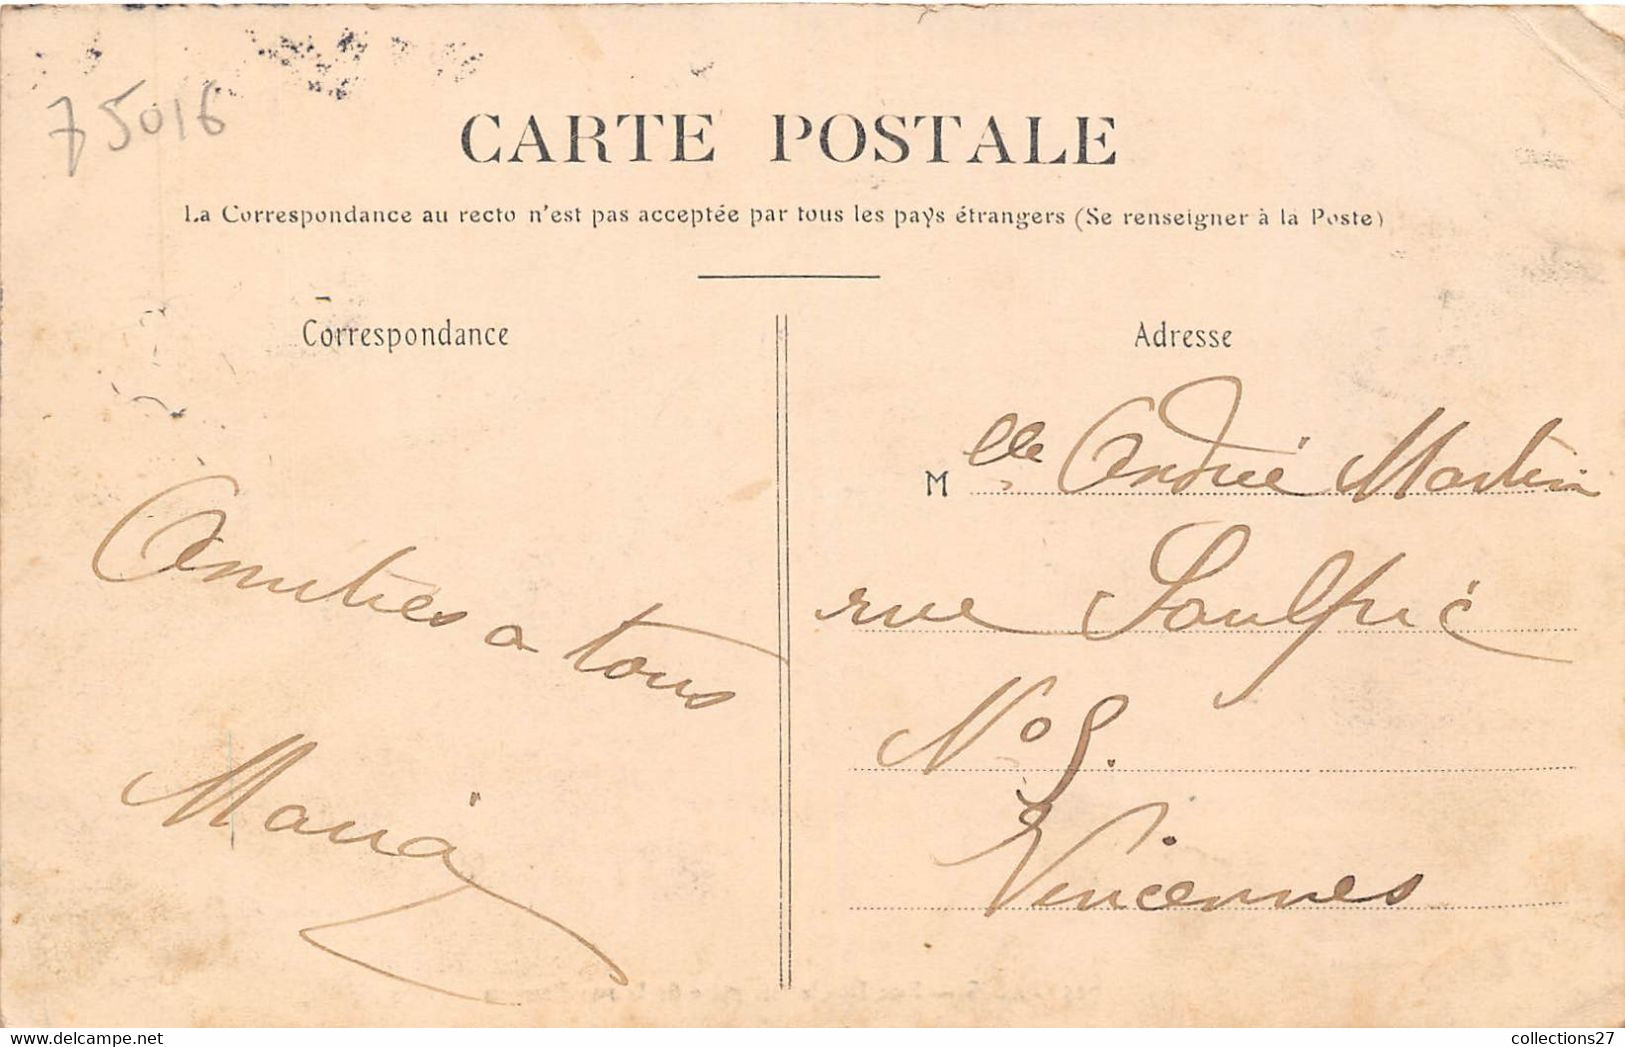 75016
CARTE POSTALE
La Correspondance au recto n'est pas acceptée par tous les pays étrangers (Se renseigner à la Poste)
Correspondance
Amitiés a tous
Maria
Adresse
Melle André Martin
rue Saulpic
No 9.
Vincennes
collections27